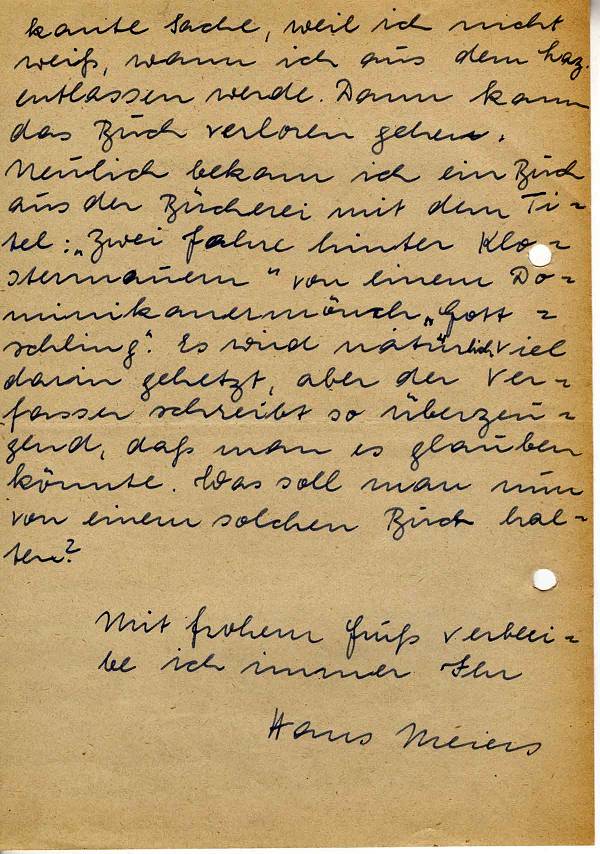 kante Sache, weil ich nicht
weiß, wann ich aus dem Laz.
entlassen werde. Dann kann
das Buch verloren gehen.
Neulich bekam ich ein Buch
aus der Bücherei mit dem Ti-
tel: „Zwei Jahre hinter Klo-
stermauern“ von einem Do-
minikanermönch „Gott-
schling“. Es wird natürlich viel
darin gehetzt, aber der Ver-
fasser schreibt so überzeu-
gend, daß man es glauben
könnte. Was soll man nun
von einem solchen Buch hal-
ten?
Mit frohem Gruß verblei-
be ich immer Ihr
Hans Meiers